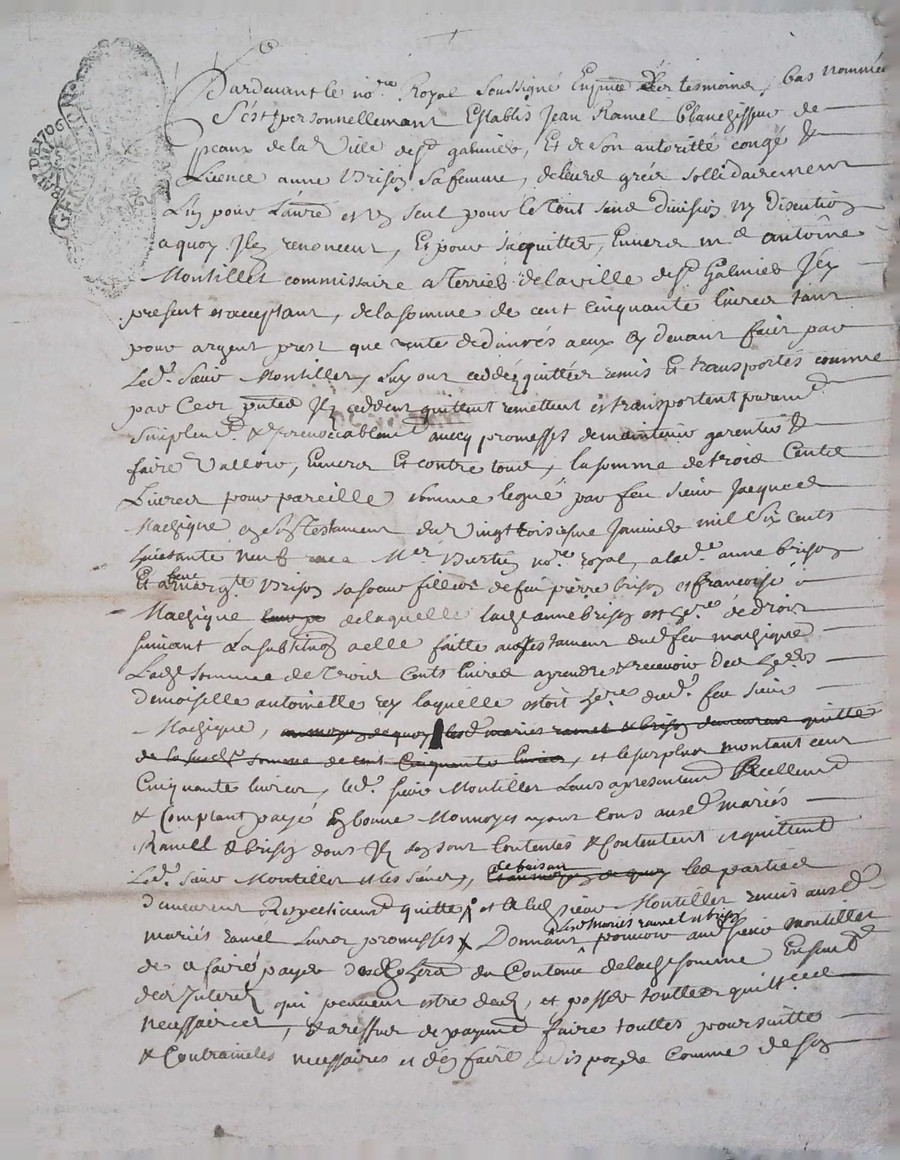 GEN DE 1706
Pardevant le no.re Royal soussigné En presence des tesmoins bas nommés
S'est personnellemant Establis Jean Ramel blanchisseur de
peaux de la Ville de St galmier, Et de son autorité congé &
Licence anne Brison sa femme, de leurs gréz sollidairement
L'un pour L'autre et un seul pour le tout sans division ny discution
a quoy Ilz renoncent, Et pour s'acquitter, Envers me antoine
Montillet commissaire a Terrier de la ville de St Galmier Icy
present et acceptant, de la somme de cent cinquante livres tant
pour argent prest que vente de danrés a eux cy devant fait par
Led. sieur Montillet, luy ont ceddéz quittés remis Et transportés comme
par Ces pntes Ilz ceddent quittent remettent et transportent purement
simplement & irrevocablement avecq promesses de maintenir garentir &
faire Valloir, Envers Et contre tous, la somme de trois Cents
Livres pour pareille somme legué par feu sieur Jacques
Machique en son testament du Vingt troisiesme Janvier mil six cents
soixante neuf receu Mer Bertin no.re royal, a lad.e anne brison
Et a feue marg.te Brison sa soeur filles de feu pierre brison et francoise
Machique de laquelle lad.e anne brison est h.re de droit
suivant la substitution a elle faitte au testament dud. feu machique
Lad.e somme de Trois Cents livres a prendre & recevoir des h.rs de
demoiselle antoinette rey laquelle estoit h.re dud. feu sieur
Machique, au moyen de quoy lesd. mariés ramel & brison demeurent quitte
de la susd.e somme de cent Cinquante livres, et le surplus montant cent
Cinquante livres, led. sieur Montillet Laus a presentement Reellement
& Comptant payé En bonne Monnoye ayant Cours ausd. mariés
Ramel & brison dont Ilz se sont Contentés & Contentent et quittent
Led. sieur Montillet et les siens, au moyen de quoy les parties
demeurent Respectivement quitte, et led. sieur Montillet remis ausd.
a lesd. mariés ramel et brison
mariés ramel leurs promesses, Donnant pouvoir aud. sieur montillet
de se faire payer du Contenu de lad.e somme Ensemble
des Interest qui peuvent estre deub, et passer touttes quittces
necessaires, & a reffus de payement faire touttes poursuitte
& Contraintes necessaires et d'en faire & dispozer Comme de son